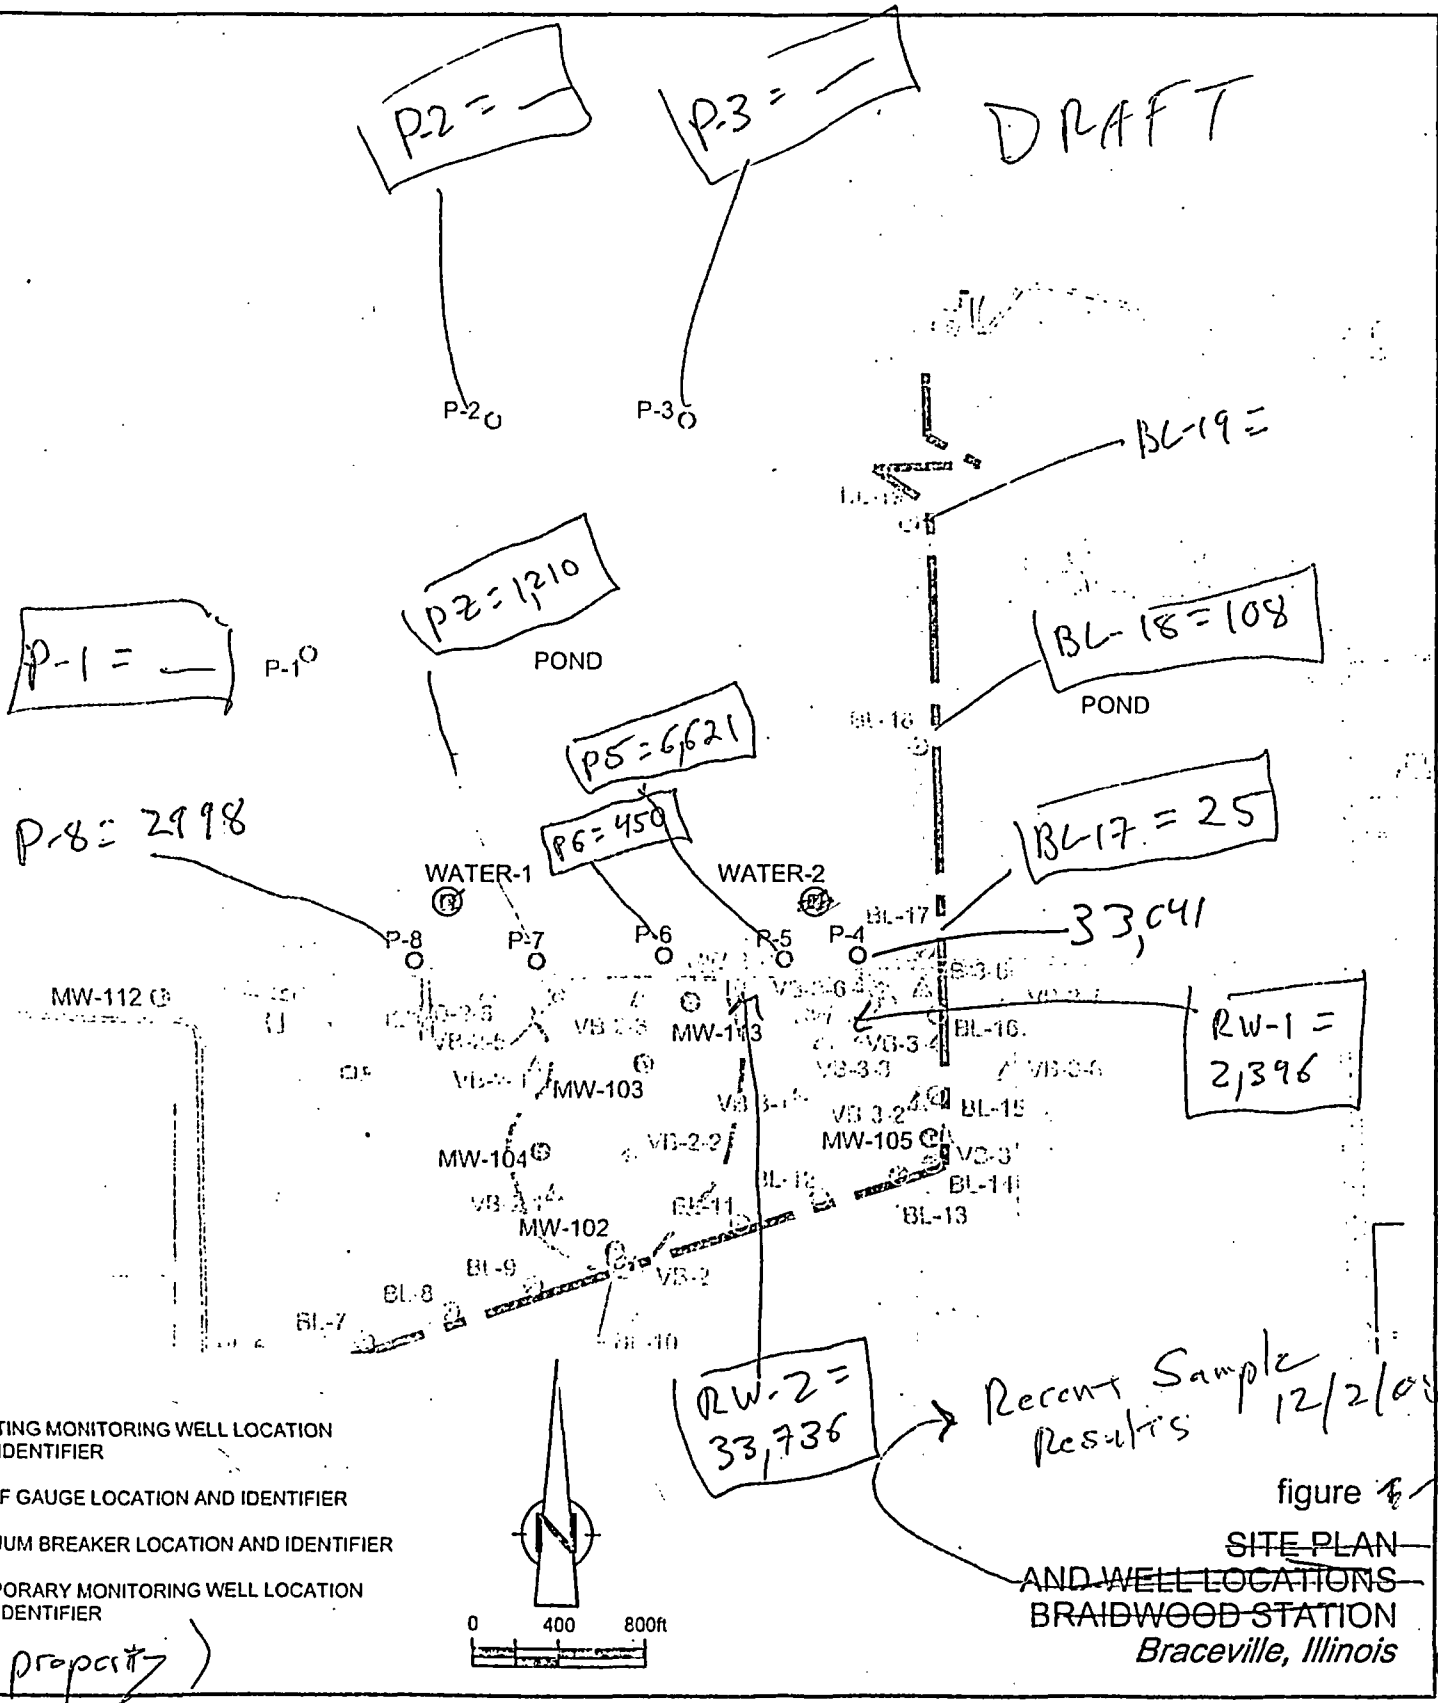 P-2 = —
P-3 = —
DRAFT
P-2
P-3
BL-19 =
PZ = 1,210
BL-18 = 108
P-1 = —
P-1
POND
POND
BL-18
P5 = 6,621
P-8 = 2998
P6 = 450
BL-17 = 25
WATER-1
WATER-2
BL-17
33,041
P-8
P-7
P-6
P-5
P-4
MW-112
MW-113
BL-16
RW-1 =
2,396
VB-3-4
VB-2-3
VB-3-3
MW-103
VB-3-2
BL-15
VB-2-2
MW-105
MW-104
VB-3
BL-14
BL-12
BL-11
BL-13
MW-102
BL-9
VB-2
BL-8
BL-7
BL-10
RW-2 =
33,736
Recent Sample
Results
12/2/0
TING MONITORING WELL LOCATION
IDENTIFIER
F GAUGE LOCATION AND IDENTIFIER
UM BREAKER LOCATION AND IDENTIFIER
PORARY MONITORING WELL LOCATION
DENTIFIER
property)
N
0 400 800ft
figure
SITE PLAN
AND WELL LOCATIONS
BRAIDWOOD STATION
Braceville, Illinois